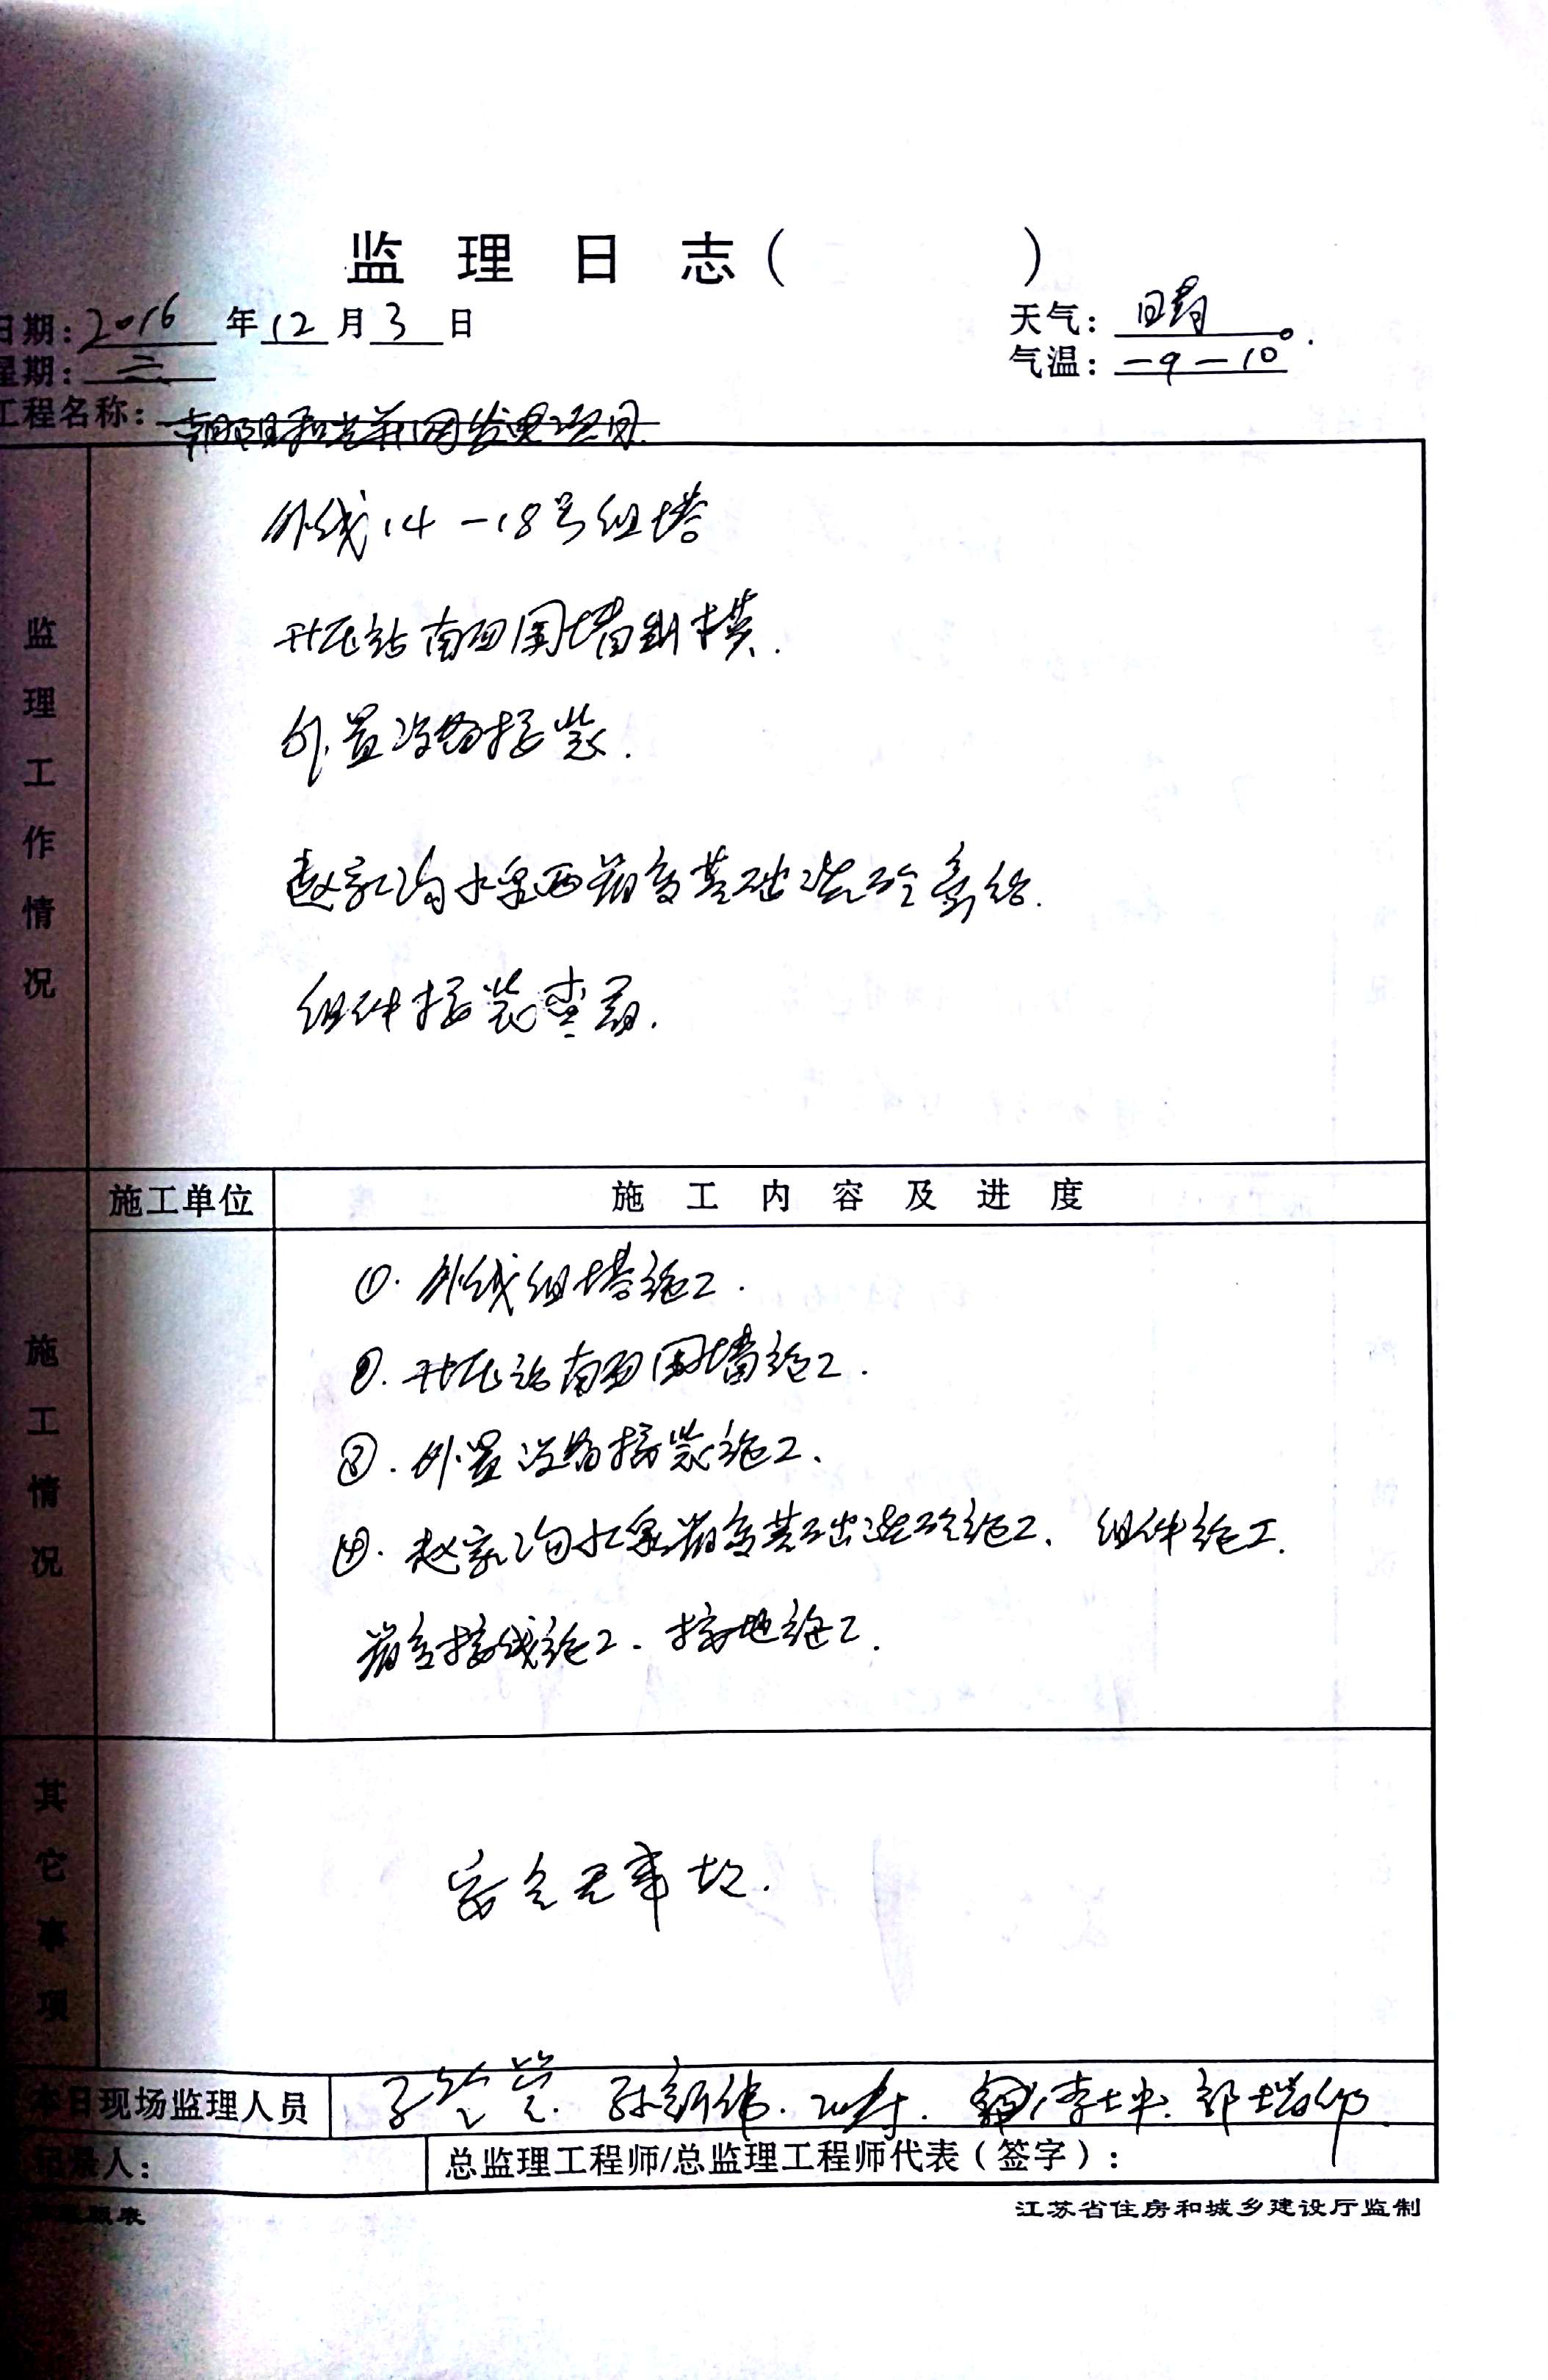 监理日志（ ）
日期：2016年12月3日
天气：晴
星期：三
气温：-9-10°
工程名称：朝阳和光并网发电项目
监理工作情况
外线14-18号组塔
升压站南面围墙 模.
外置设备接装.
赵家沟水泉西箱变基础浇砼
组件接装查看.
施工单位
施工内容及进度
施工情况
①.外线组塔施工.
②.升压站南面围墙施工.
③.外置设备接装施工、
④.赵家沟水泉箱变基础浇砼施工、组件施工.
箱变接线施工、接地施工.
其它事项
安全无事故.
本日现场监理人员
孙新伟. 李士忠.
记录人：
总监理工程师/总监理工程师代表（签字）：
江苏省住房和城乡建设厅监制